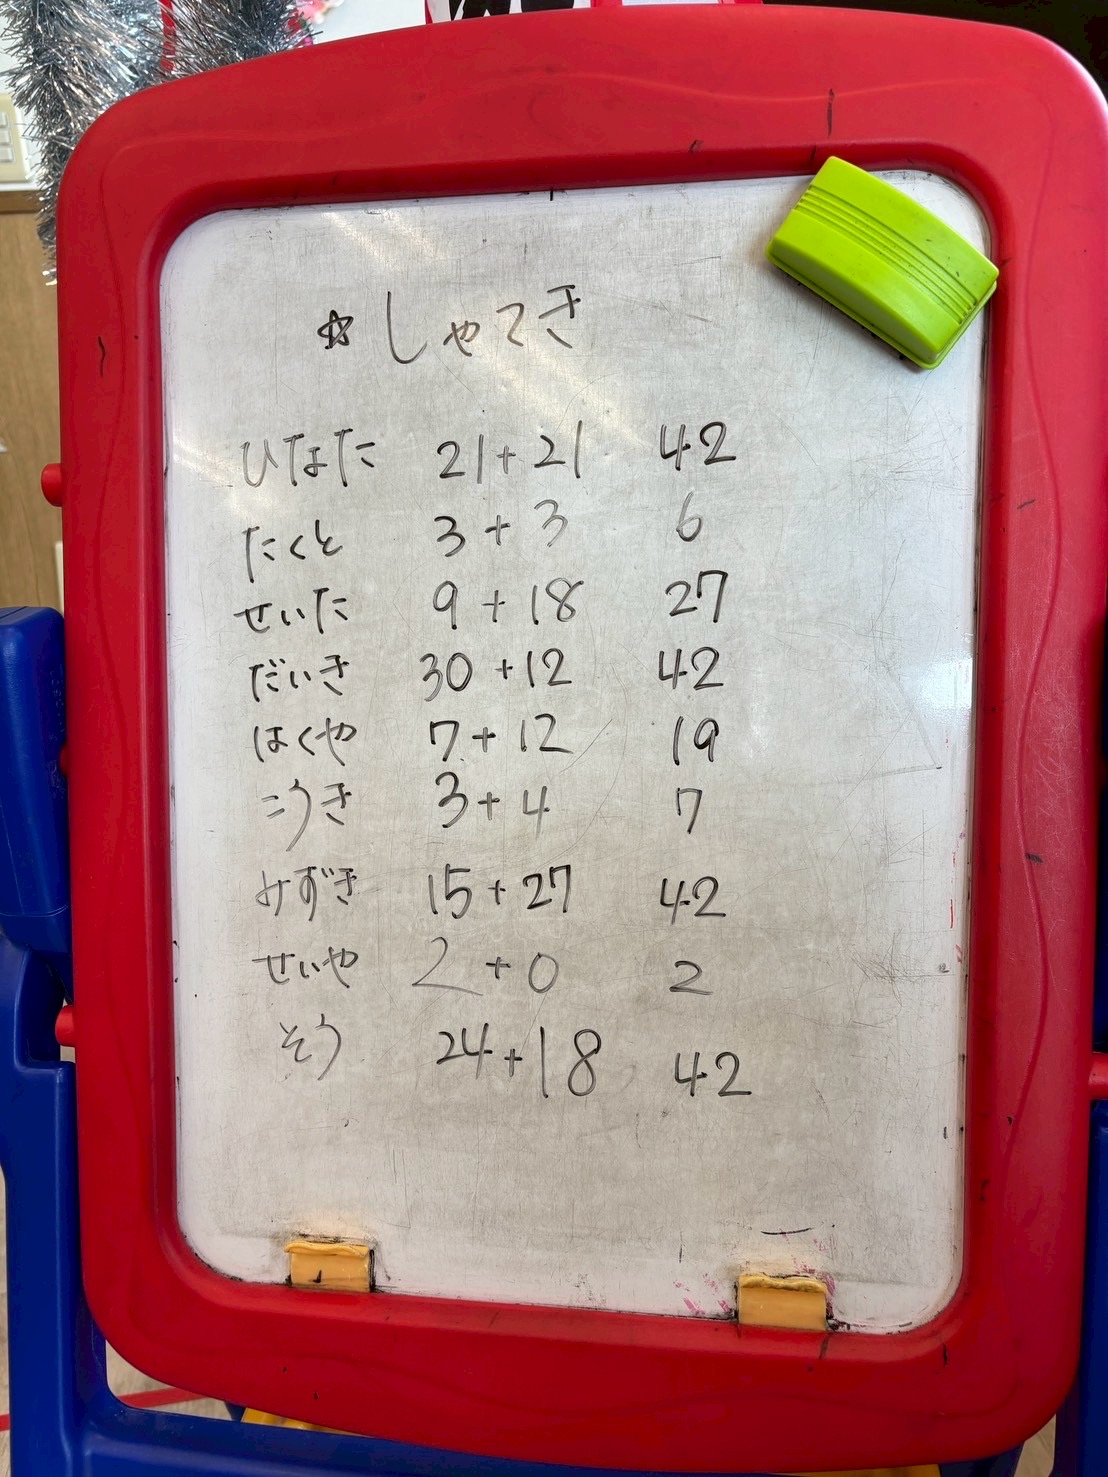 ☆しゃてき
ひなた 21+21 42
たくと 3+3 6
せいた 9+18 27
だいき 30+12 42
はくや 7+12 19
こうき 3+4 7
みずき 15+27 42
せいや 2+0 2
そう 24+18 42